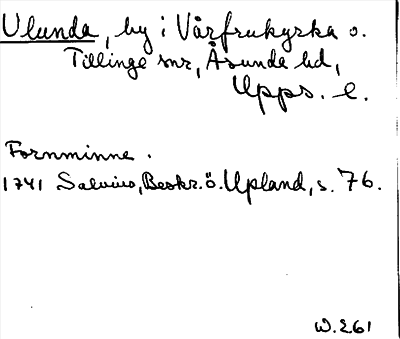 Ulunda, by i Vårfrukyrka o.
Tillinge snr, Åsunda hd,
Upps. l.
Fornminne.
1741 Salvius, Beskr. ö. Upland, s. 76.
W.261